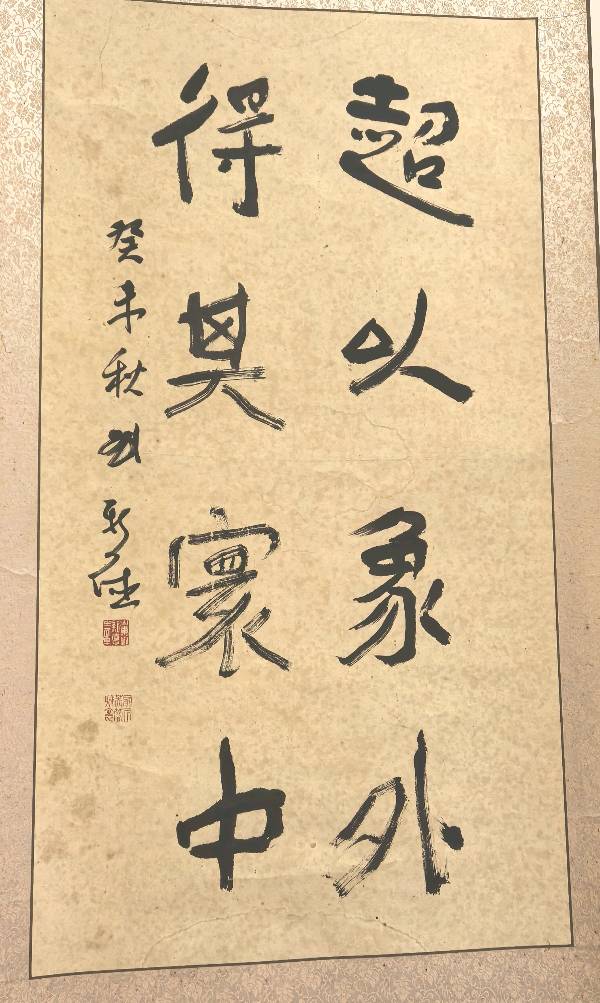 超以象外
得其寰中
癸未秋刘